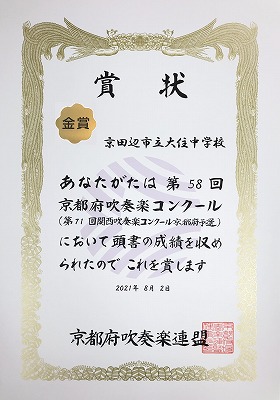 賞状
金賞
京田辺市立大住中学校
あなたがたは 第58回
京都府吹奏楽コンクール
(第71回関西吹奏楽コンクール京都府予選)
において頭書の成績を収め
られたので これを賞します
2021年 8月 2日
京都府吹奏楽連盟